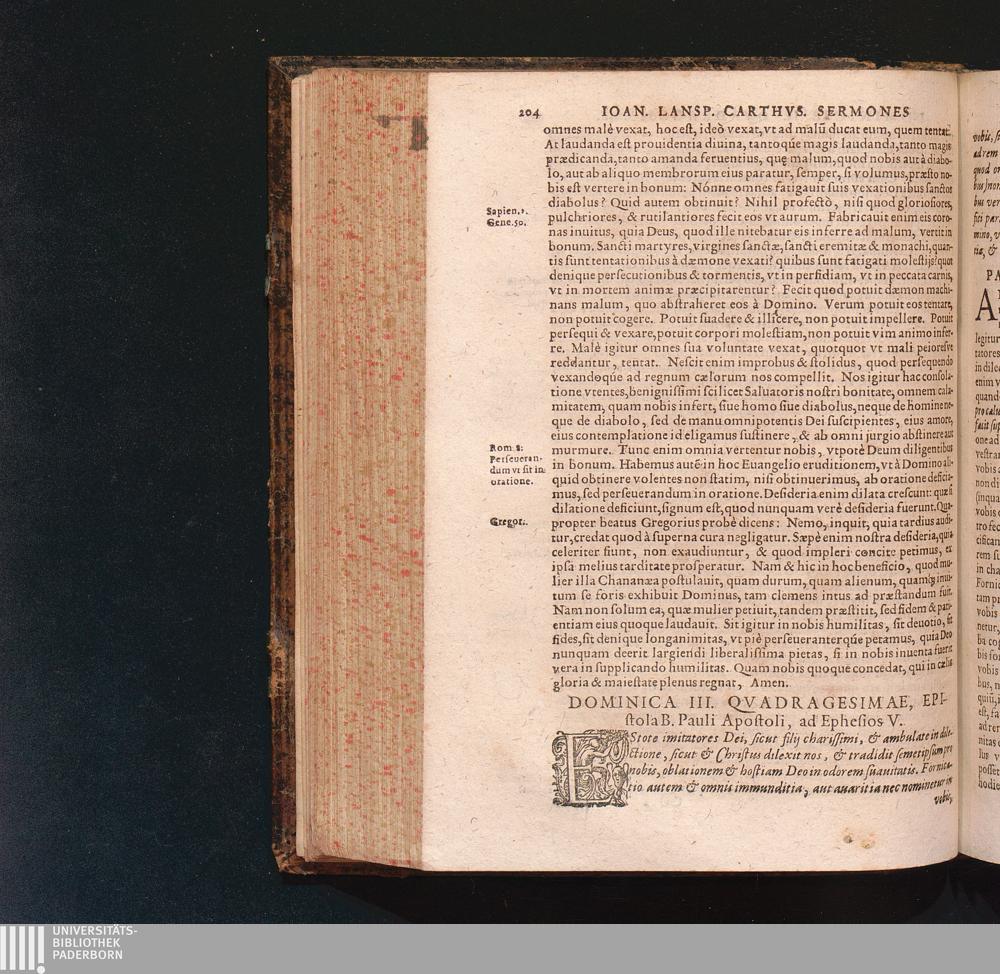 204 IOAN. LANSP. CARTHVS. SERMONES
omnes malè vexat, hoc est, ideò vexat, vt ad malũ ducat eum, quem tentat.
At laudanda est prouidentia diuina, tantoqúe magis laudanda, tanto magis
prædicanda, tanto amanda feruentius, quę malum, quod nobis aut à diabo-
lo, aut ab aliquo membrorum eius paratur, semper, si volumus, præsto no-
bis est vertere in bonum: Nónne omnes fatigauit suis vexationibus sanctos
diabolus? Quid autem obtinuit? Nihil profectò, nisi quod gloriosiores,
Sapien.2.
Gene.50.
pulchriores, & rutilantiores fecit eos vt aurum. Fabricauit enim eis coro-
nas inuitus, quia Deus, quod ille nitebatur eis inferre ad malum, vertit in
bonum. Sancti martyres, virgines sanctæ, sancti eremitæ & monachi, quan-
tis sunt tentationibus à dæmone vexati? quibus sunt fatigati molestijs? quot
denique persecutionibus & tormentis, vt in perfidiam, vt in peccata carnis,
vt in mortem animæ præcipitarentur? Fecit quod potuit dæmon machi-
nans malum, quo abstraheret eos à Domino. Verum potuit eos tentare,
non potuit cogere. Potuit suadere & illicere, non potuit impellere. Potuit
persequi & vexare, potuit corpori molestiam, non potuit vim animo infer-
re. Malè igitur omnes sua voluntate vexat, quotquot vt mali peioresve
reddantur, tentat. Nescit enim improbus & stolidus, quod persequendo
vexandoqúe ad regnum cælorum nos compellit. Nos igitur hac consola-
tione vtentes, benignissimi scilicet Saluatoris nostri bonitate, omnem cala-
mitatem, quam nobis infert, siue homo siue diabolus, neque de homine ne-
que de diabolo, sed de manu omnipotentis Dei suscipientes, eius amore,
eius contemplatione id eligamus sustinere, & ab omni iurgio abstinere aut
Rom 8:
Perseueran-
dum vt sit in
oratione.
murmure. Tunc enim omnia vertentur nobis, vtpotè Deum diligentibus
in bonum. Habemus autẽ in hoc Euangelio eruditionem, vt à Domino ali-
quid obtinere volentes non statim, nisi obtinuerimus, ab oratione deficia-
mus, sed perseuerandum in oratione. Desideria enim dilata crescunt: quæ si
dilatione deficiunt, signum est, quod nunquam verè desideria fuerunt. Qua-
Gregor.
propter beatus Gregorius probè dicens: Nemo, inquit, quia tardius audi-
tur, credat quod à superna cura negligatur. Sæpè enim nostra desideria, quia
celeriter fiunt, non exaudiuntur, & quod impleri concite petimus, ex
ipsa melius tarditate prosperatur. Nam & hic in hoc beneficio, quod mu-
lier illa Chananæa postulauit, quam durum, quam alienum, quamq́; inui-
tum se foris exhibuit Dominus, tam clemens intus ad præstandum fuit.
Nam non solum ea, quæ mulier petiuit, tandem præstitit, sed fidem & pati-
entiam eius quoque laudauit. Sit igitur in nobis humilitas, sit deuotio, sit
fides, sit denique longanimitas, vt piè perseueranterqúe petamus, quia Deo
nunquam deerit largiendi liberalissima pietas, si in nobis inuenta fuerit
vera in supplicando humilitas. Quam nobis quoque concedat, qui in cælis
gloria & maiestate plenus regnat, Amen.
DOMINICA III. QVADRAGESIMAE, EPI-
stola B. Pauli Apostoli, ad Ephesios V.
EStote imitatores Dei, sicut filij charissimi, & ambulate in dile-
ctione, sicut & Christus dilexit nos, & tradidit semetipsum pro
nobis, oblationem & hostiam Deo in odorem suauitatis. Fornica-
tio autem & omnis immunditia, aut auaritia nec nominetur in
vobis,
UNIVERSITÄTS-
BIBLIOTHEK
PADERBORN